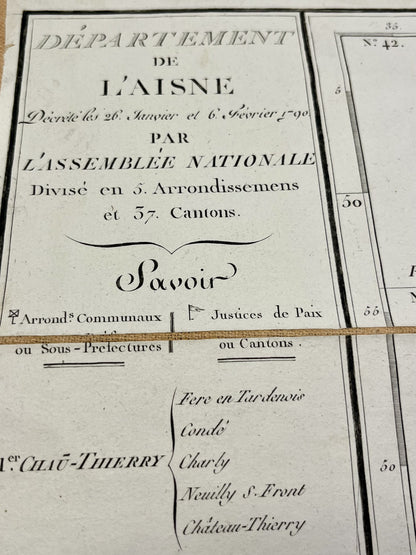 DÉPARTEMENT
DE
L'AISNE
Décrété les 26. Janvier et 6. Février 1790.
PAR
L'ASSEMBLÉE NATIONALE
Divisé en 5. Arrondissemens
et 37. Cantons.
Savoir
Arrond.s Communaux
ou Sous-Préfectures
Justices de Paix
ou Cantons.
1.er CHAU-THIERRY
Fere en Tardenois
Condé
Charly
Neuilly S. Front
Château-Thierry
35.
N.o 42.
5
50
55
50